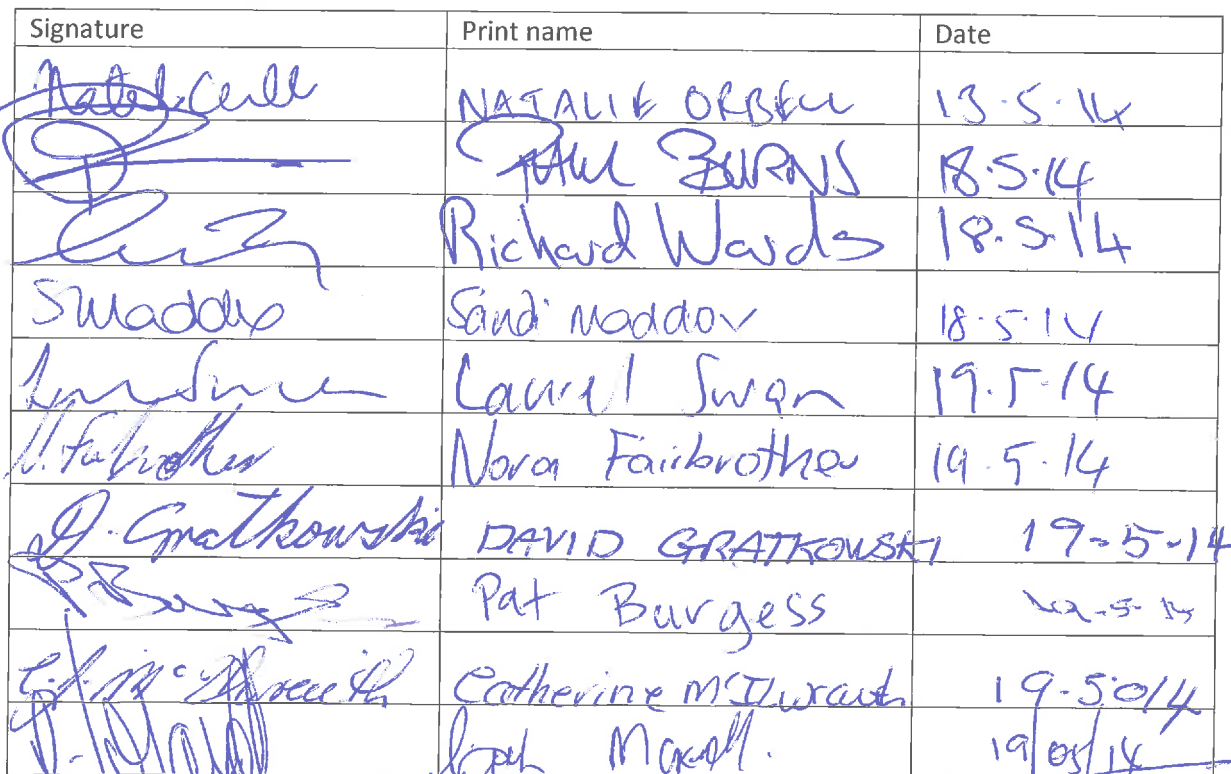 Signature Print name Date
NATALIE ORBELL 13.5.14
PAUL BURNS 18.5.14
Richard Wards 18.5.14
SMaddox Sandi Maddox 18.5.14
Laurel Swan 19.5.14
N. Fairbrother Nora Fairbrother 19.5.14
D. Gratkowski DAVID GRATKOWSKI 19-5-14
P. Burgess Pat Burgess
McIlwraith Catherine McIlwraith 19-5-014
19/05/14